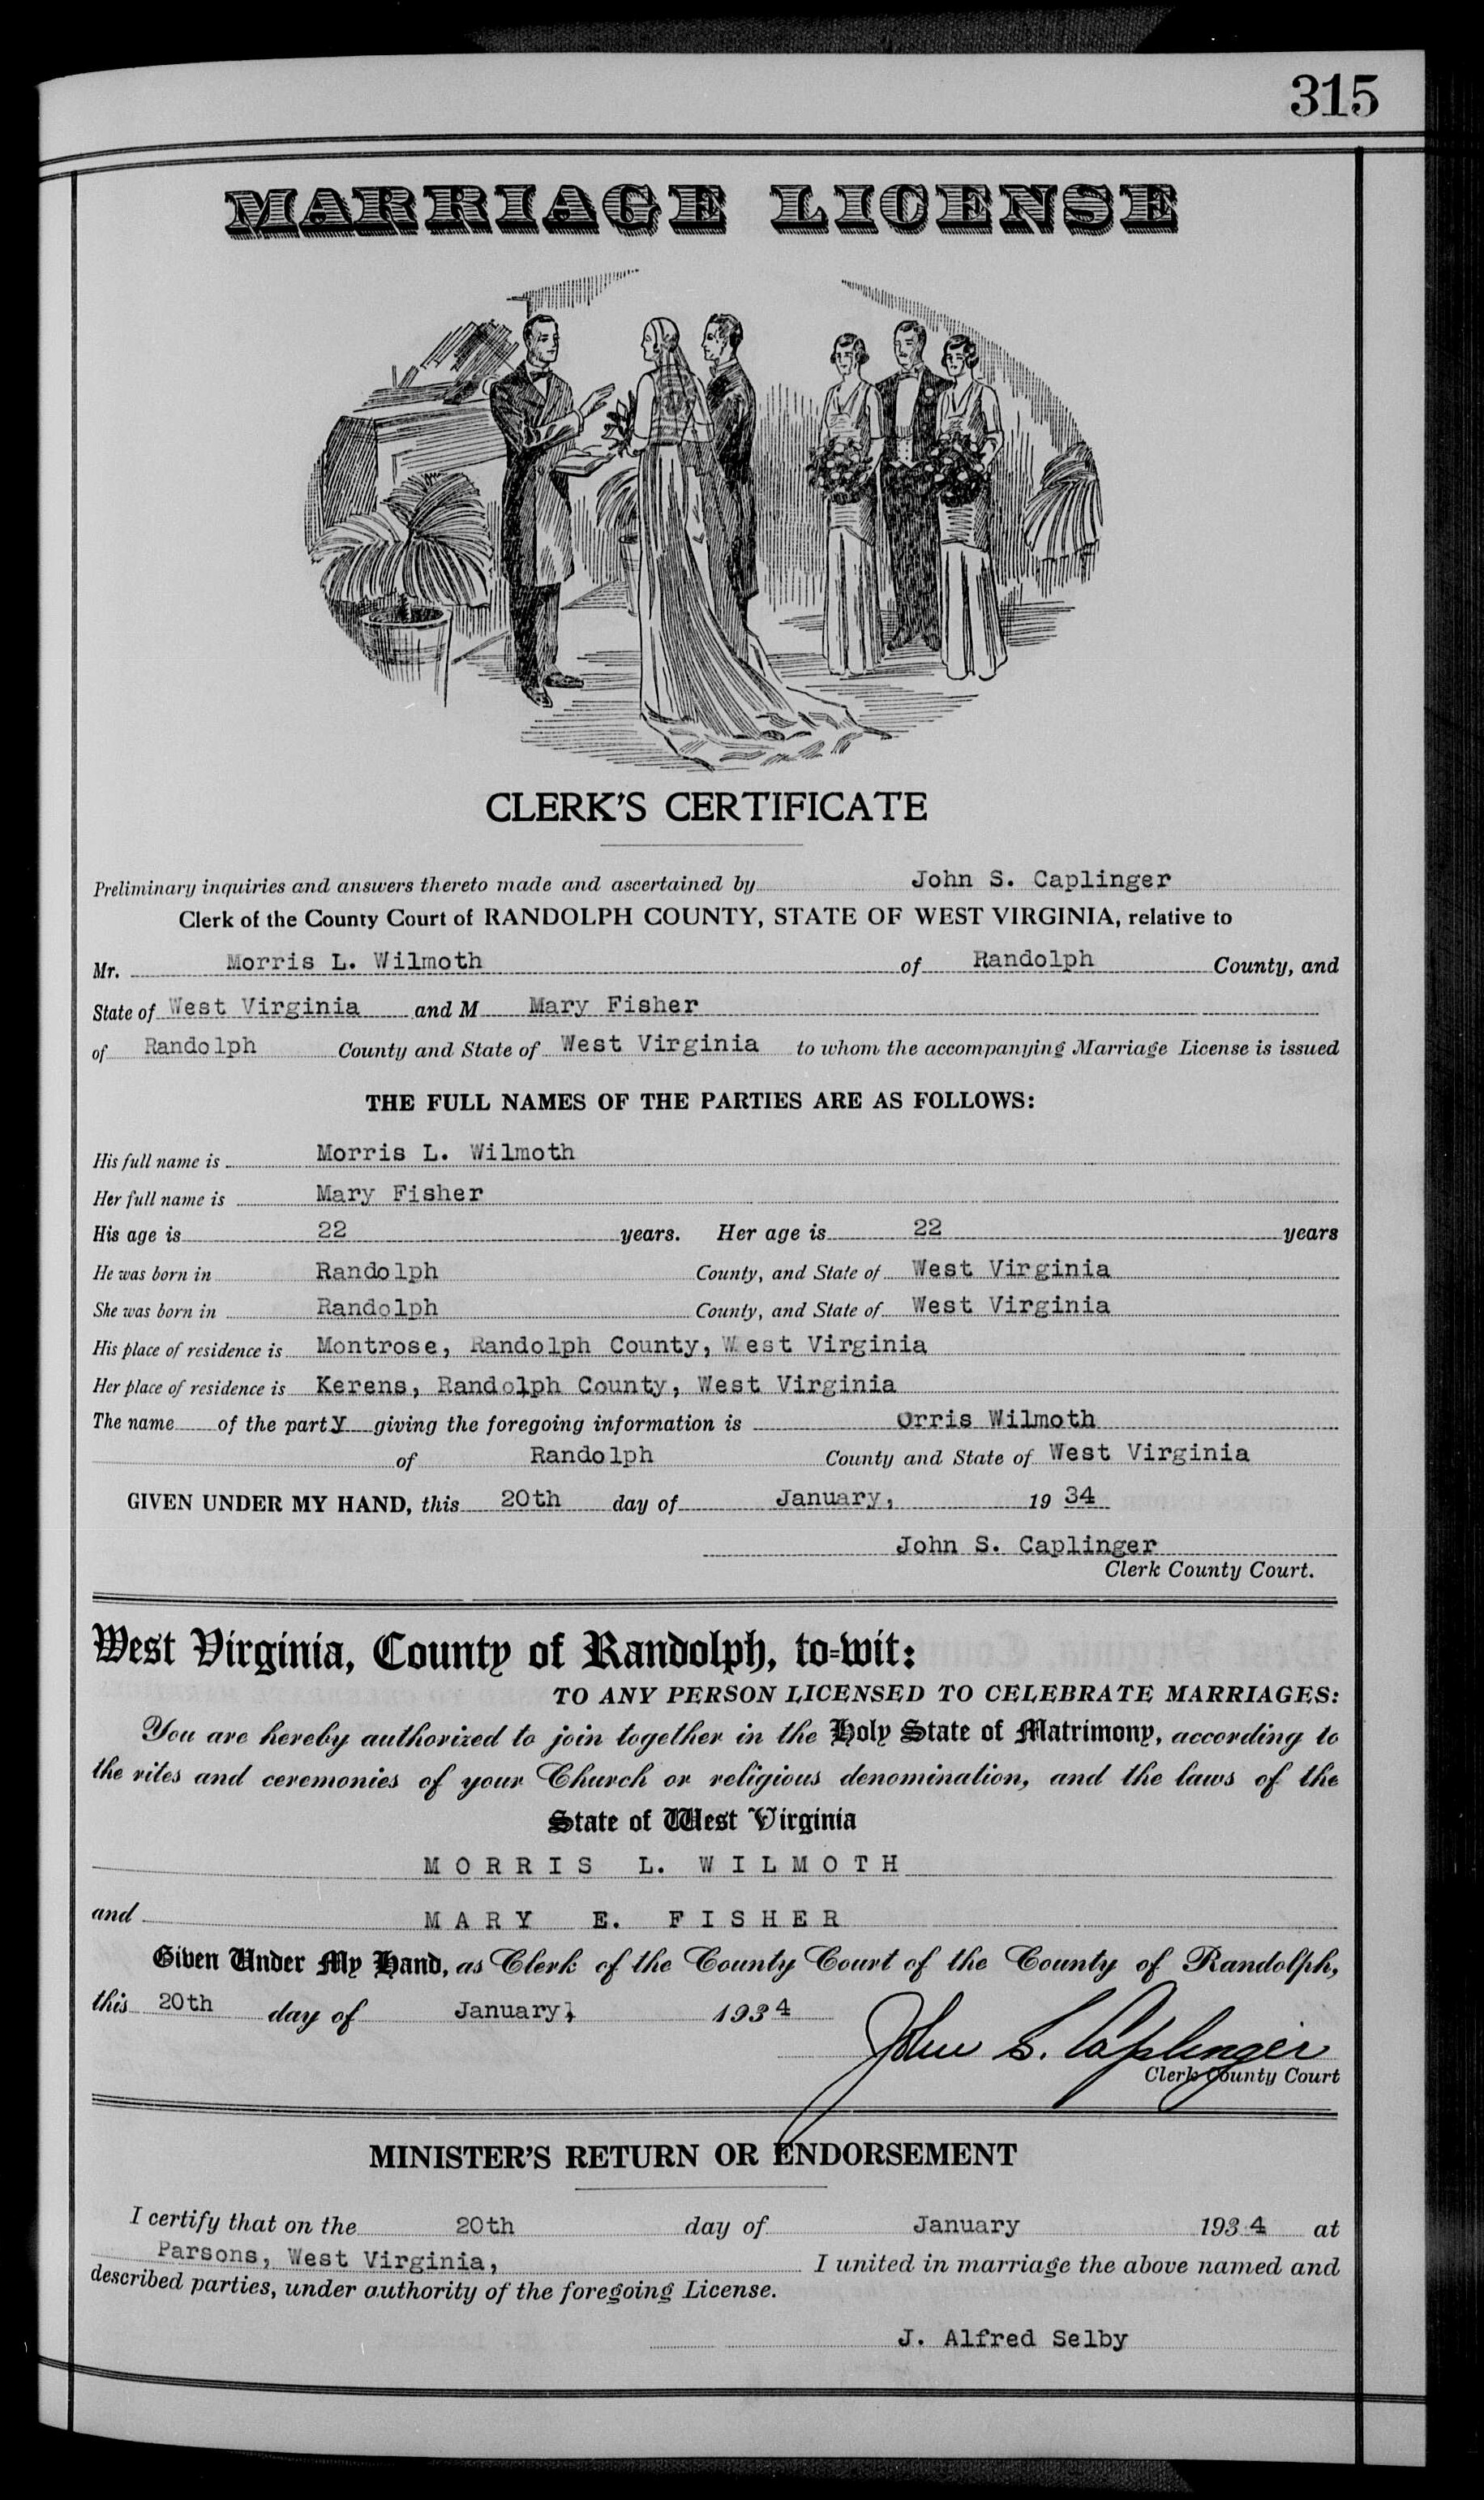 315
MARRIAGE LICENSE
CLERK'S CERTIFICATE
Preliminary inquiries and answers thereto made and ascertained by John S. Caplinger
Clerk of the County Court of RANDOLPH COUNTY, STATE OF WEST VIRGINIA, relative to
Mr. Morris L. Wilmoth of Randolph County, and
State of West Virginia and M Mary Fisher
of Randolph County and State of West Virginia to whom the accompanying Marriage License is issued
THE FULL NAMES OF THE PARTIES ARE AS FOLLOWS:
His full name is Morris L. Wilmoth
Her full name is Mary Fisher
His age is 22 years. Her age is 22 years
He was born in Randolph County, and State of West Virginia
She was born in Randolph County, and State of West Virginia
His place of residence is Montrose, Randolph County, West Virginia
Her place of residence is Kerens, Randolph County, West Virginia
The name of the party giving the foregoing information is Orris Wilmoth
of Randolph County and State of West Virginia
GIVEN UNDER MY HAND, this 20th day of January, 19 34
John S. Caplinger
Clerk County Court.
West Virginia, County of Randolph, to-wit:
TO ANY PERSON LICENSED TO CELEBRATE MARRIAGES:
You are hereby authorized to join together in the Holy State of Matrimony, according to
the rites and ceremonies of your Church or religious denomination, and the laws of the
State of West Virginia
MORRIS L. WILMOTH
and MARY E. FISHER
Given Under My Hand, as Clerk of the County Court of the County of Randolph,
this 20th day of January, 1934
John S. Caplinger
Clerk County Court
MINISTER'S RETURN OR ENDORSEMENT
I certify that on the 20th day of January 1934 at
Parsons, West Virginia, I united in marriage the above named and
described parties, under authority of the foregoing License.
J. Alfred Selby